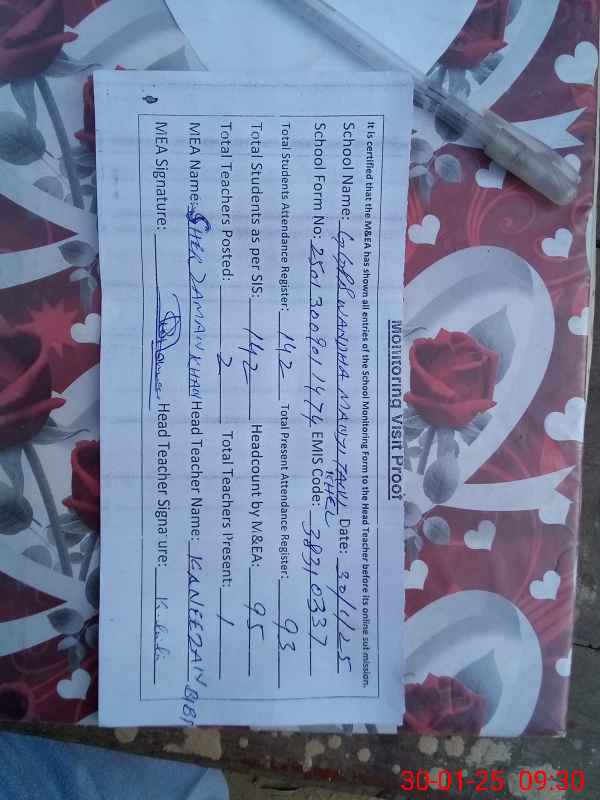 Monitoring Visit Proof
It is certified that the M&EA has shown all entries of the School Monitoring Form to the Head Teacher before its online submission.
School Name: GGPS WANDHA MANJITANI KHEL Date: 30/1/25
School Form No: 25013009011474 EMIS Code: 38310337
Total Students Attendance Register: 142 Total Present Attendance Register: 93
Total Students as per SIS: 142 Headcount by M&EA: 95
Total Teachers Posted: 2 Total Teachers Present: 1
MEA Name: SHER ZAMAN KHAN Head Teacher Name: KANEEZAN BIBI
MEA Signature: Head Teacher Signature:
30-01-25 09:30